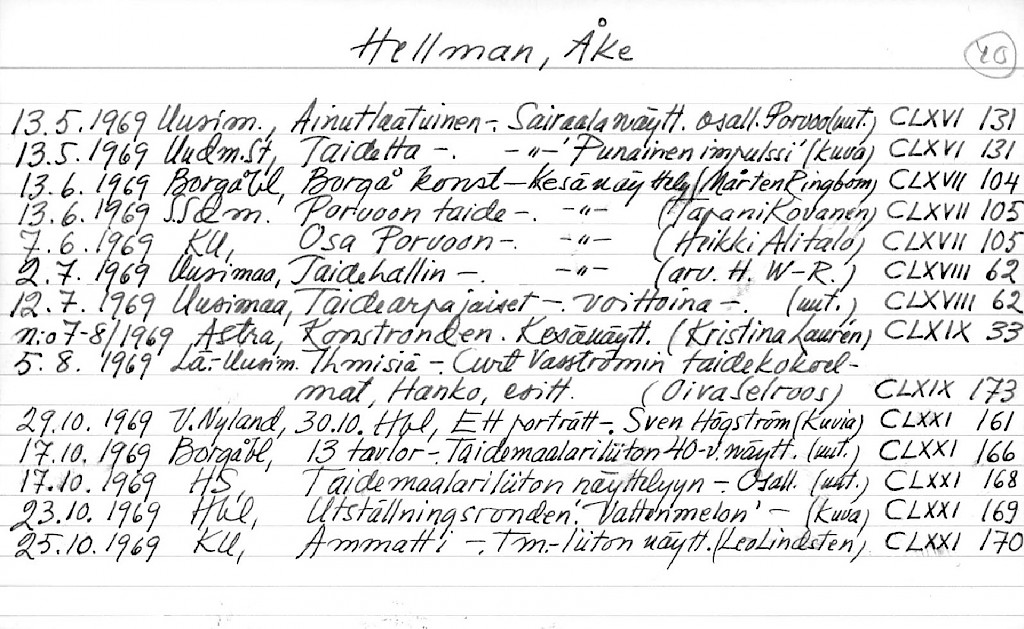 Hellman, Åke
40
13.5.1969 Uusim., Ainutlaatuinen -. Sairaalanäytt. osall. Porvoo (uut.) CLXVI 131
13.5.1969 Uudm.St, Taidetta -. -"- 'Punainen impulssi' (kuva) CLXVI 131
13.6.1969 Borgåbl, Borgå konst - Kesänäyttely (Mårten Ringbom) CLXVII 104
13.6.1969 S.Sdm. Porvoon taide -. -"- (Tapani Kovanen) CLXVII 105
7.6.1969 KU, Osa Porvoon -. -"- (Heikki Alitalo) CLXVII 105
2.7.1969 Uusimaa, Taidehallin -. -"- (arv. H. W-R.) CLXVIII 62
12.7.1969 Uusimaa, Taidearpajaiset - voittoina -. (uut.) CLXVIII 62
n:o 7-8/1969 Astra, Konstronden. Kesänäytt. (Kristina Laurén) CLXIX 33
5.8.1969 Lä-Uusim. Ihmisiä -. Curt Vasströmin taidekokoel-
mat, Hanko, esitt. (Oiva Selroos) CLXIX 173
29.10.1969 V.Nyland, 30.10. Hbl, Ett porträtt -. Sven Högström (Kuvia) CLXXI 161
17.10.1969 Borgåbl, 13 tavlor -. Taidemaalariliiton 40-v. näytt. (uut.) CLXXI 166
17.10.1969 HS, Taidemaalariliiton näyttelyyn -. Osall. (uut.) CLXXI 168
23.10.1969 Hbl, Utställningsronden. 'Vattenmelon' - (Kuva) CLXXI 169
25.10.1969 KU, Ammatti -. Tm.-liiton näytt. (Leo Lindsten) CLXXI 170